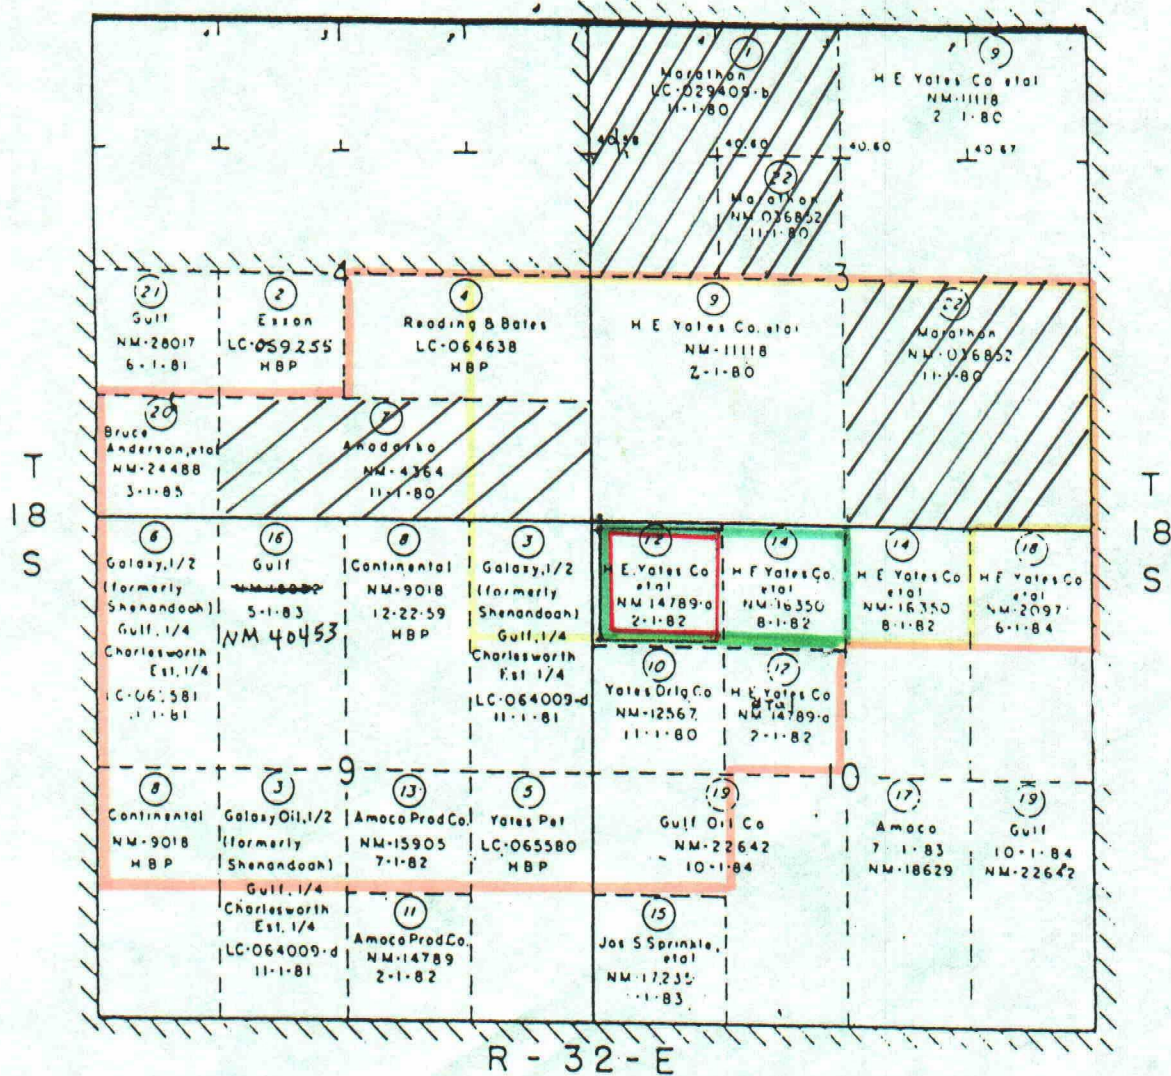 4 3 2 4 3 2
①
Marathon
LC-029409-b
11-1-80
⑨
H E Yates Co etal
NM-11118
2-1-80
40.60 40.60 40.67
㉒
Marathon
NM-036852
11-1-80
4 3
㉑
Gulf
NM-28017
6-1-81
②
Exxon
LC-059255
HBP
④
Reading & Bates
LC-064638
HBP
⑨
H E Yates Co. etal
NM-11118
2-1-80
㉒
Marathon
NM-036852
11-1-80
⑳
Bruce
Anderson, etal
NM-24488
3-1-85
⑦
Anadarko
NM-4364
11-1-80
T
18
S
T
18
S
⑥
Galaxy, 1/2
(formerly
Shenandoah)
Gulf, 1/4
Charlesworth
Est. 1/4
1-81
⑯
Gulf
5-1-83
NM 40453
⑧
Continental
NM-9018
12-22-59
HBP
③
Galaxy, 1/2
(formerly
Shenandoah)
Gulf, 1/4
Charlesworth
Est 1/4
LC-064009-d
11-1-81
⑫
H.E. Yates Co
etal
NM 14789-a
2-1-82
⑭
H E Yates Co.
etal
NM-16350
8-1-82
⑭
H E Yates Co
etal
NM-16350
8-1-82
⑱
H E Yates Co
etal
NM-2097
6-1-84
⑩
Yates Drlg Co
NM-12567
11-1-80
⑫
H E Yates Co
etal
NM-14789-a
2-1-82
9 10
⑧
Continental
NM-9018
HBP
③
Galaxy Oil, 1/2
(formerly
Shenandoah)
Gulf, 1/4
Charlesworth
Est, 1/4
LC-064009-d
11-1-81
⑬
Amoco Prod Co.
NM-15905
7-1-82
⑤
Yates Pet
LC-065580
HBP
⑲
Gulf Oil Co
NM-22642
10-1-84
⑰
Amoco
7-1-83
NM-18629
⑲
Gulf
10-1-84
NM-22642
⑪
Amoco Prod Co.
NM-14789
2-1-82
⑮
Jas S Sprinkle,
etal
NM-17235
1-83
R-32-E